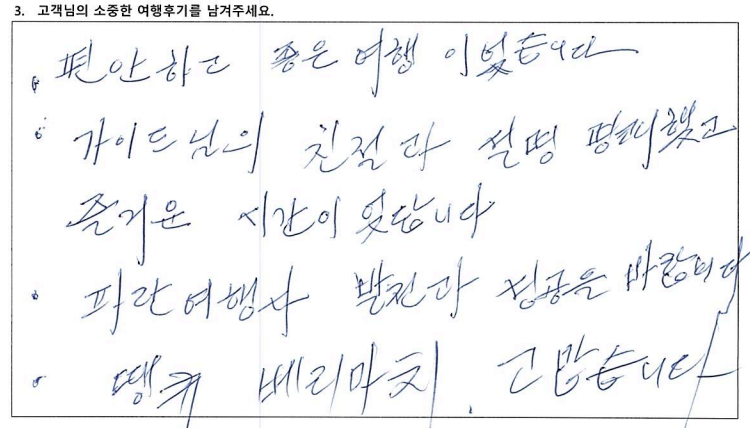 3. 고객님의 소중한 여행후기를 남겨주세요.
편안하고 좋은 여행 이었습니다
가이드님의 친절과 설명 했고
즐거운 시간이 었답니다
파란여행사 발전과 성공을 바랍니다
땡큐 베리마치. 고맙습니다